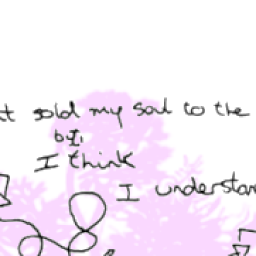 sold my soul to the
I think
I understan